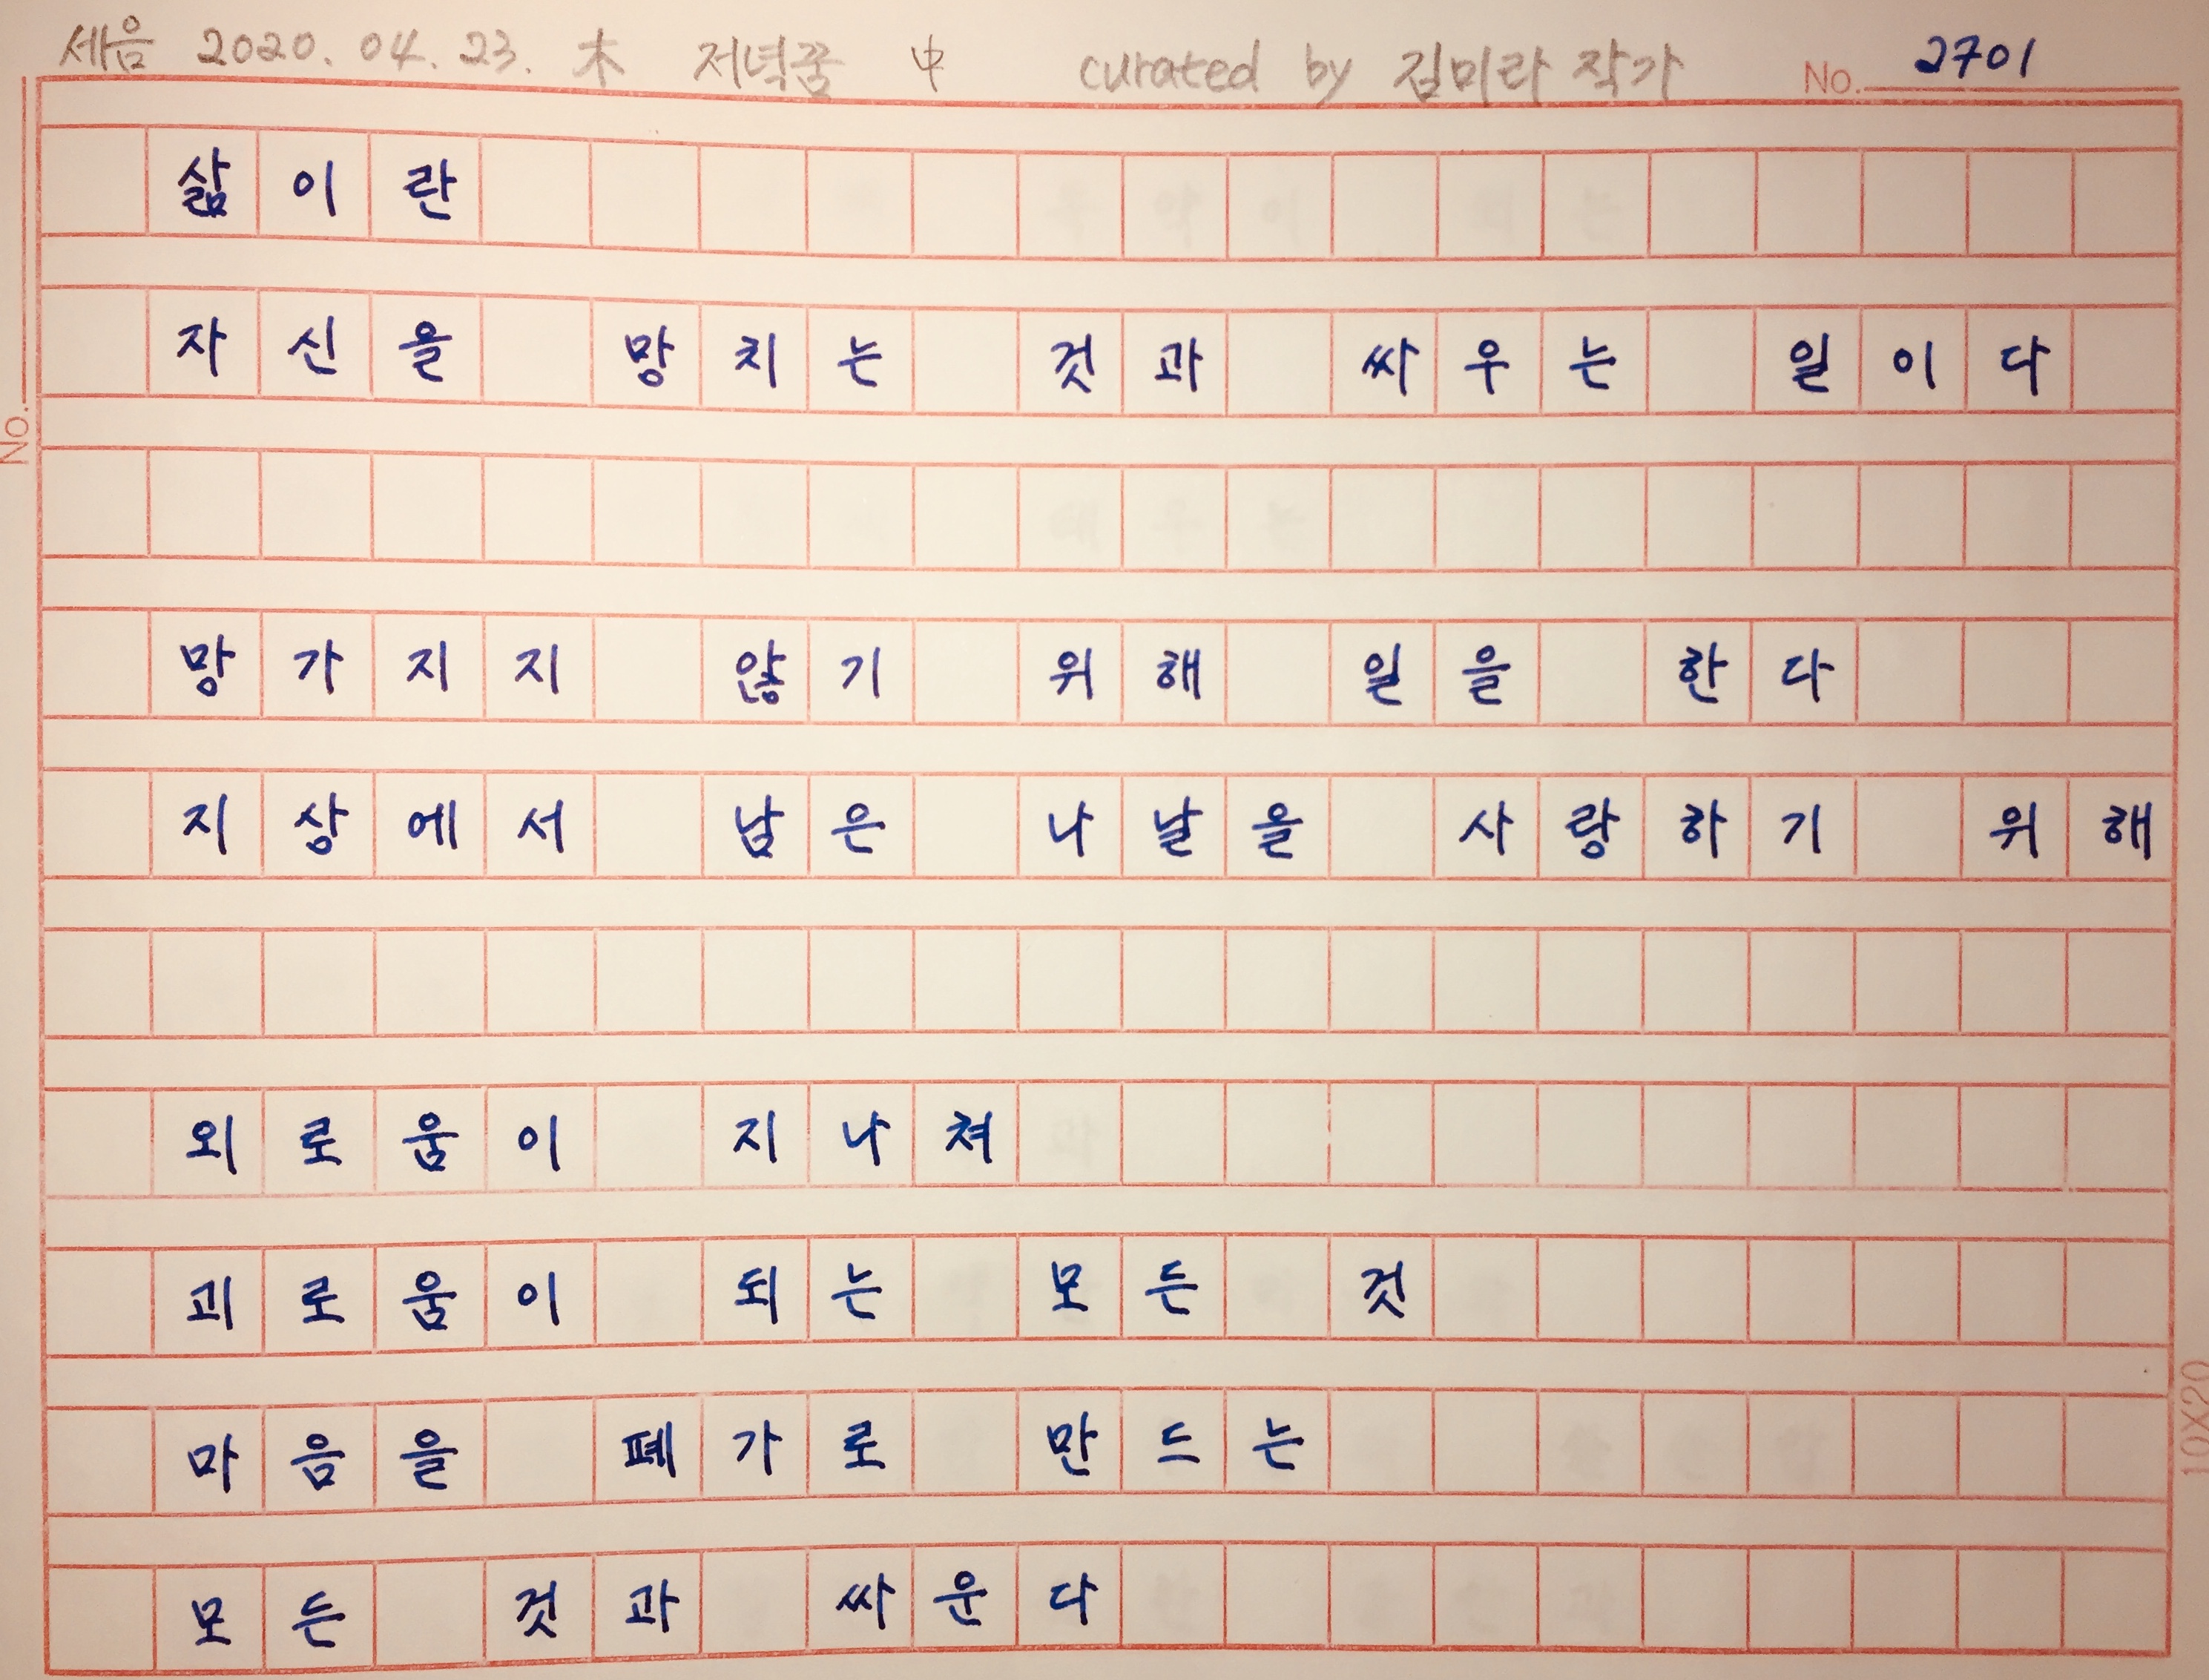 세음 2020. 04. 23. 木 저녁꿈 中 curated by 김미라 작가 No. 2701
삶이란
자신을 망치는 것과 싸우는 일이다
No.
망가지지 않기 위해 일을 한다
지상에서 남은 나날을 사랑하기 위해
외로움이 지나쳐
괴로움이 되는 모든 것
마음을 폐가로 만드는
모든 것과 싸운다
10X20